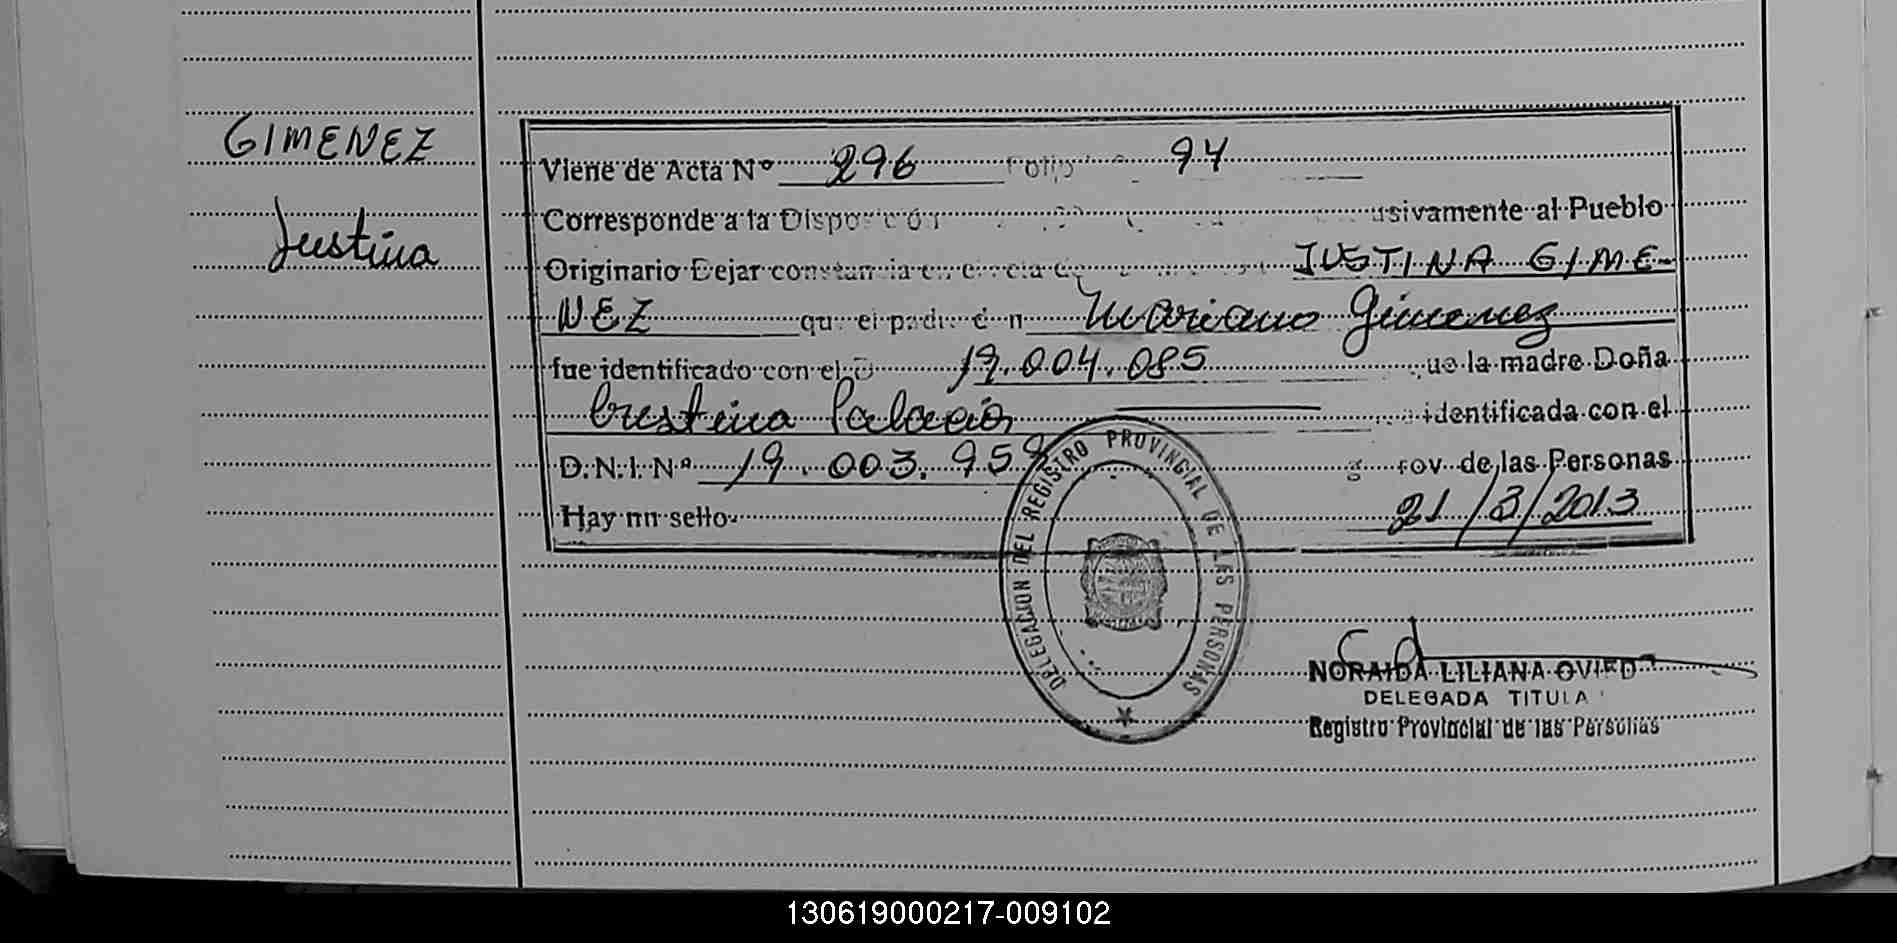 GIMENEZ
Justina
Viene de Acta Nº 296 Folio 94
Corresponde a la Disposición usivamente al Pueblo
Originario Dejar constancia en JUSTINA GIME-
NEZ que el padre don Mariano Gimenez
fue identificado con el D 19.004.085 que la madre Doña
Crestina Palacio identificada con el
D.N.I. Nº 19.003.959 rov. de las Personas
Hay un sello. 21/3/2013
DELEGACION DEL REGISTRO PROVINCIAL DE LAS PERSONAS
NORAIDA LILIANA OVIEDO
DELEGADA TITULA
Registro Provincial de las Personas
130619000217-009102